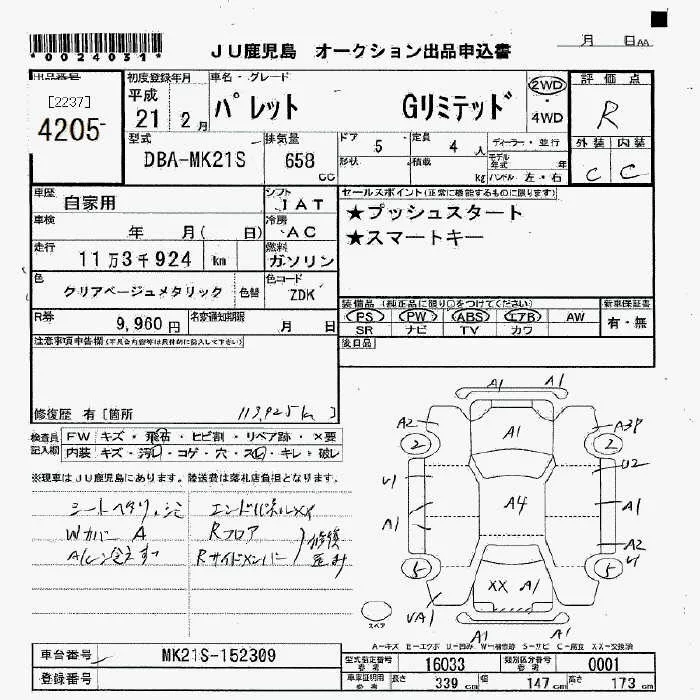 *0024031*
JU鹿児島 オークション出品申込書
月 日 AA
出品番号
[2237]
4205
初度登録年月
平成
21 2月
車名・グレード
パレット Gリミテッド
2WD
・
4WD
評価点
R
型式
DBA-MK21S
排気量
658
CC
ドア
5
定員
4人
ディーラー・並行
形状
積載
kg
モデル
年式
年
ハンドル 左・右
外装 内装
C C
車歴
自家用
シフト
IAT
セールスポイント(正常に機能するものに限ります)
★プッシュスタート
★スマートキー
車検
年 月( 日)
冷房
AC
走行
11万3千924 km
燃料
ガソリン
色
クリアベージュメタリック
色替
色コード
ZDK
装備品(純正品に限り○をつけてください)
新車保証書
PS PW ABS エアB AW
有・無
SR ナビ TV カワ
R券
9,960円
名変通知期限
月 日
後日品
注意事項申告欄
修復歴 有[箇所 113,925km ]
検査員
記入欄
FW キズ・飛石・ヒビ割・リペア跡・×要
内装 キズ・汚レ・コゲ・穴・スレ・キレ・破レ
※現車はJU鹿児島にあります。陸送費は落札店負担となります。
エンドパネルXX
Wカバー A
Rフロア
Rサイドメンバー
修復
A1 A1
A2 A1
2 2
U2
A1 A4 A1
A2
5 5
XX A1
A1 A1
スペア
A=キズ E=エクボ U=凹み W=補修跡 S=サビ C=腐食 XX=交換済
車台番号
MK21S-152309
登録番号
型式指定番号
参考
16033
類別区分番号
参考
0001
車車証明用
参考
長さ
339 cm
幅
147 cm
高さ
173 cm